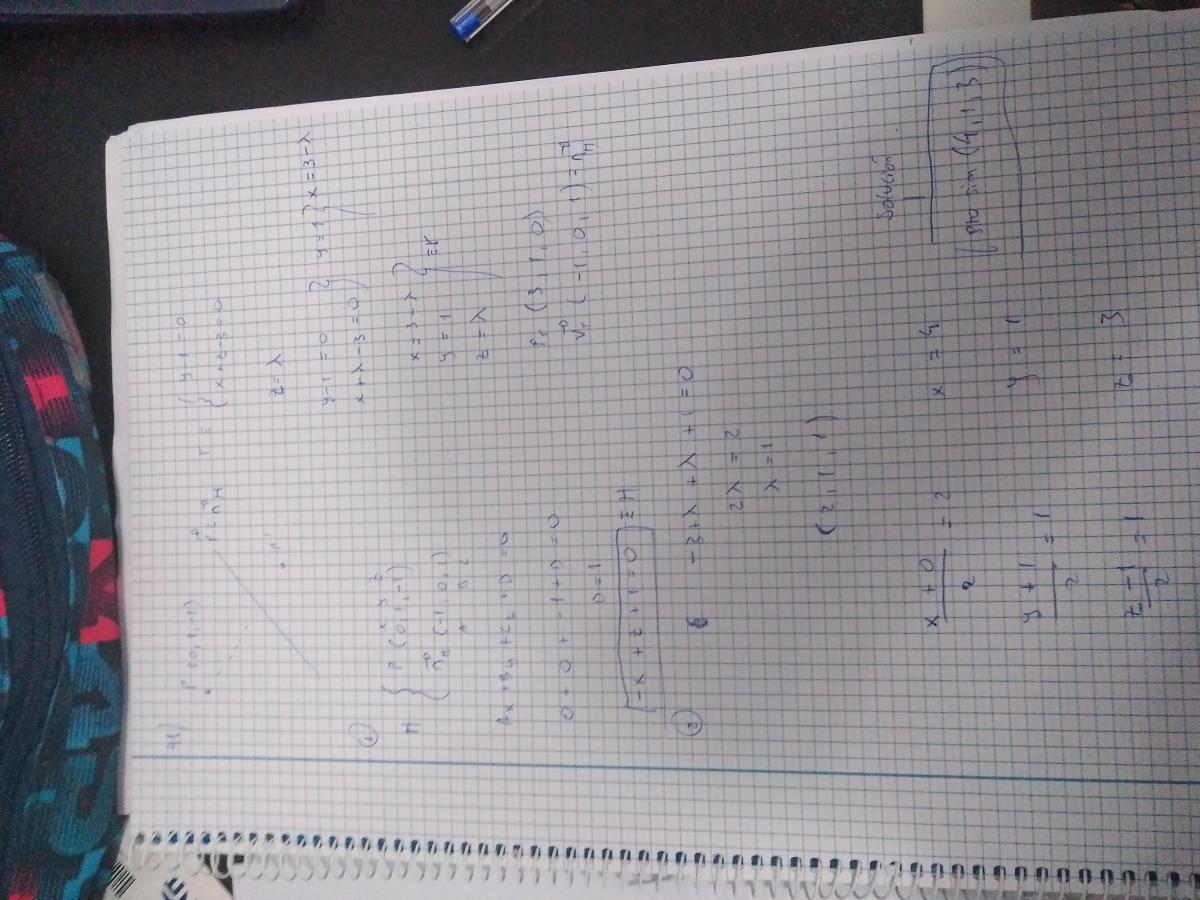 91) P(0,1,-1) r ≡ { y-1=0
{ x+z-3=0
z=λ
y-1=0 } y=1 } x=3-λ
x+λ-3=0
x=3-λ
y=1 } ≡r
z=λ
Pr (3,1,0)
v⃗r (-1,0,1) = n⃗π
①
π { P (0,1,-1)
x y z
n⃗π (-1,0,1)
A B C
Ax+By+Cz+D=0
0+0+-1+D=0
D=1
-x+z+1=0 ≡π
②
-3+λ+λ+1=0
2λ=2
λ=1
(2,1,1)
x+0/2 = 2 x=4
y+1/2 = 1 y=1
z-1/2 = 1 z=3
Solución
pto sim (4,1,3)